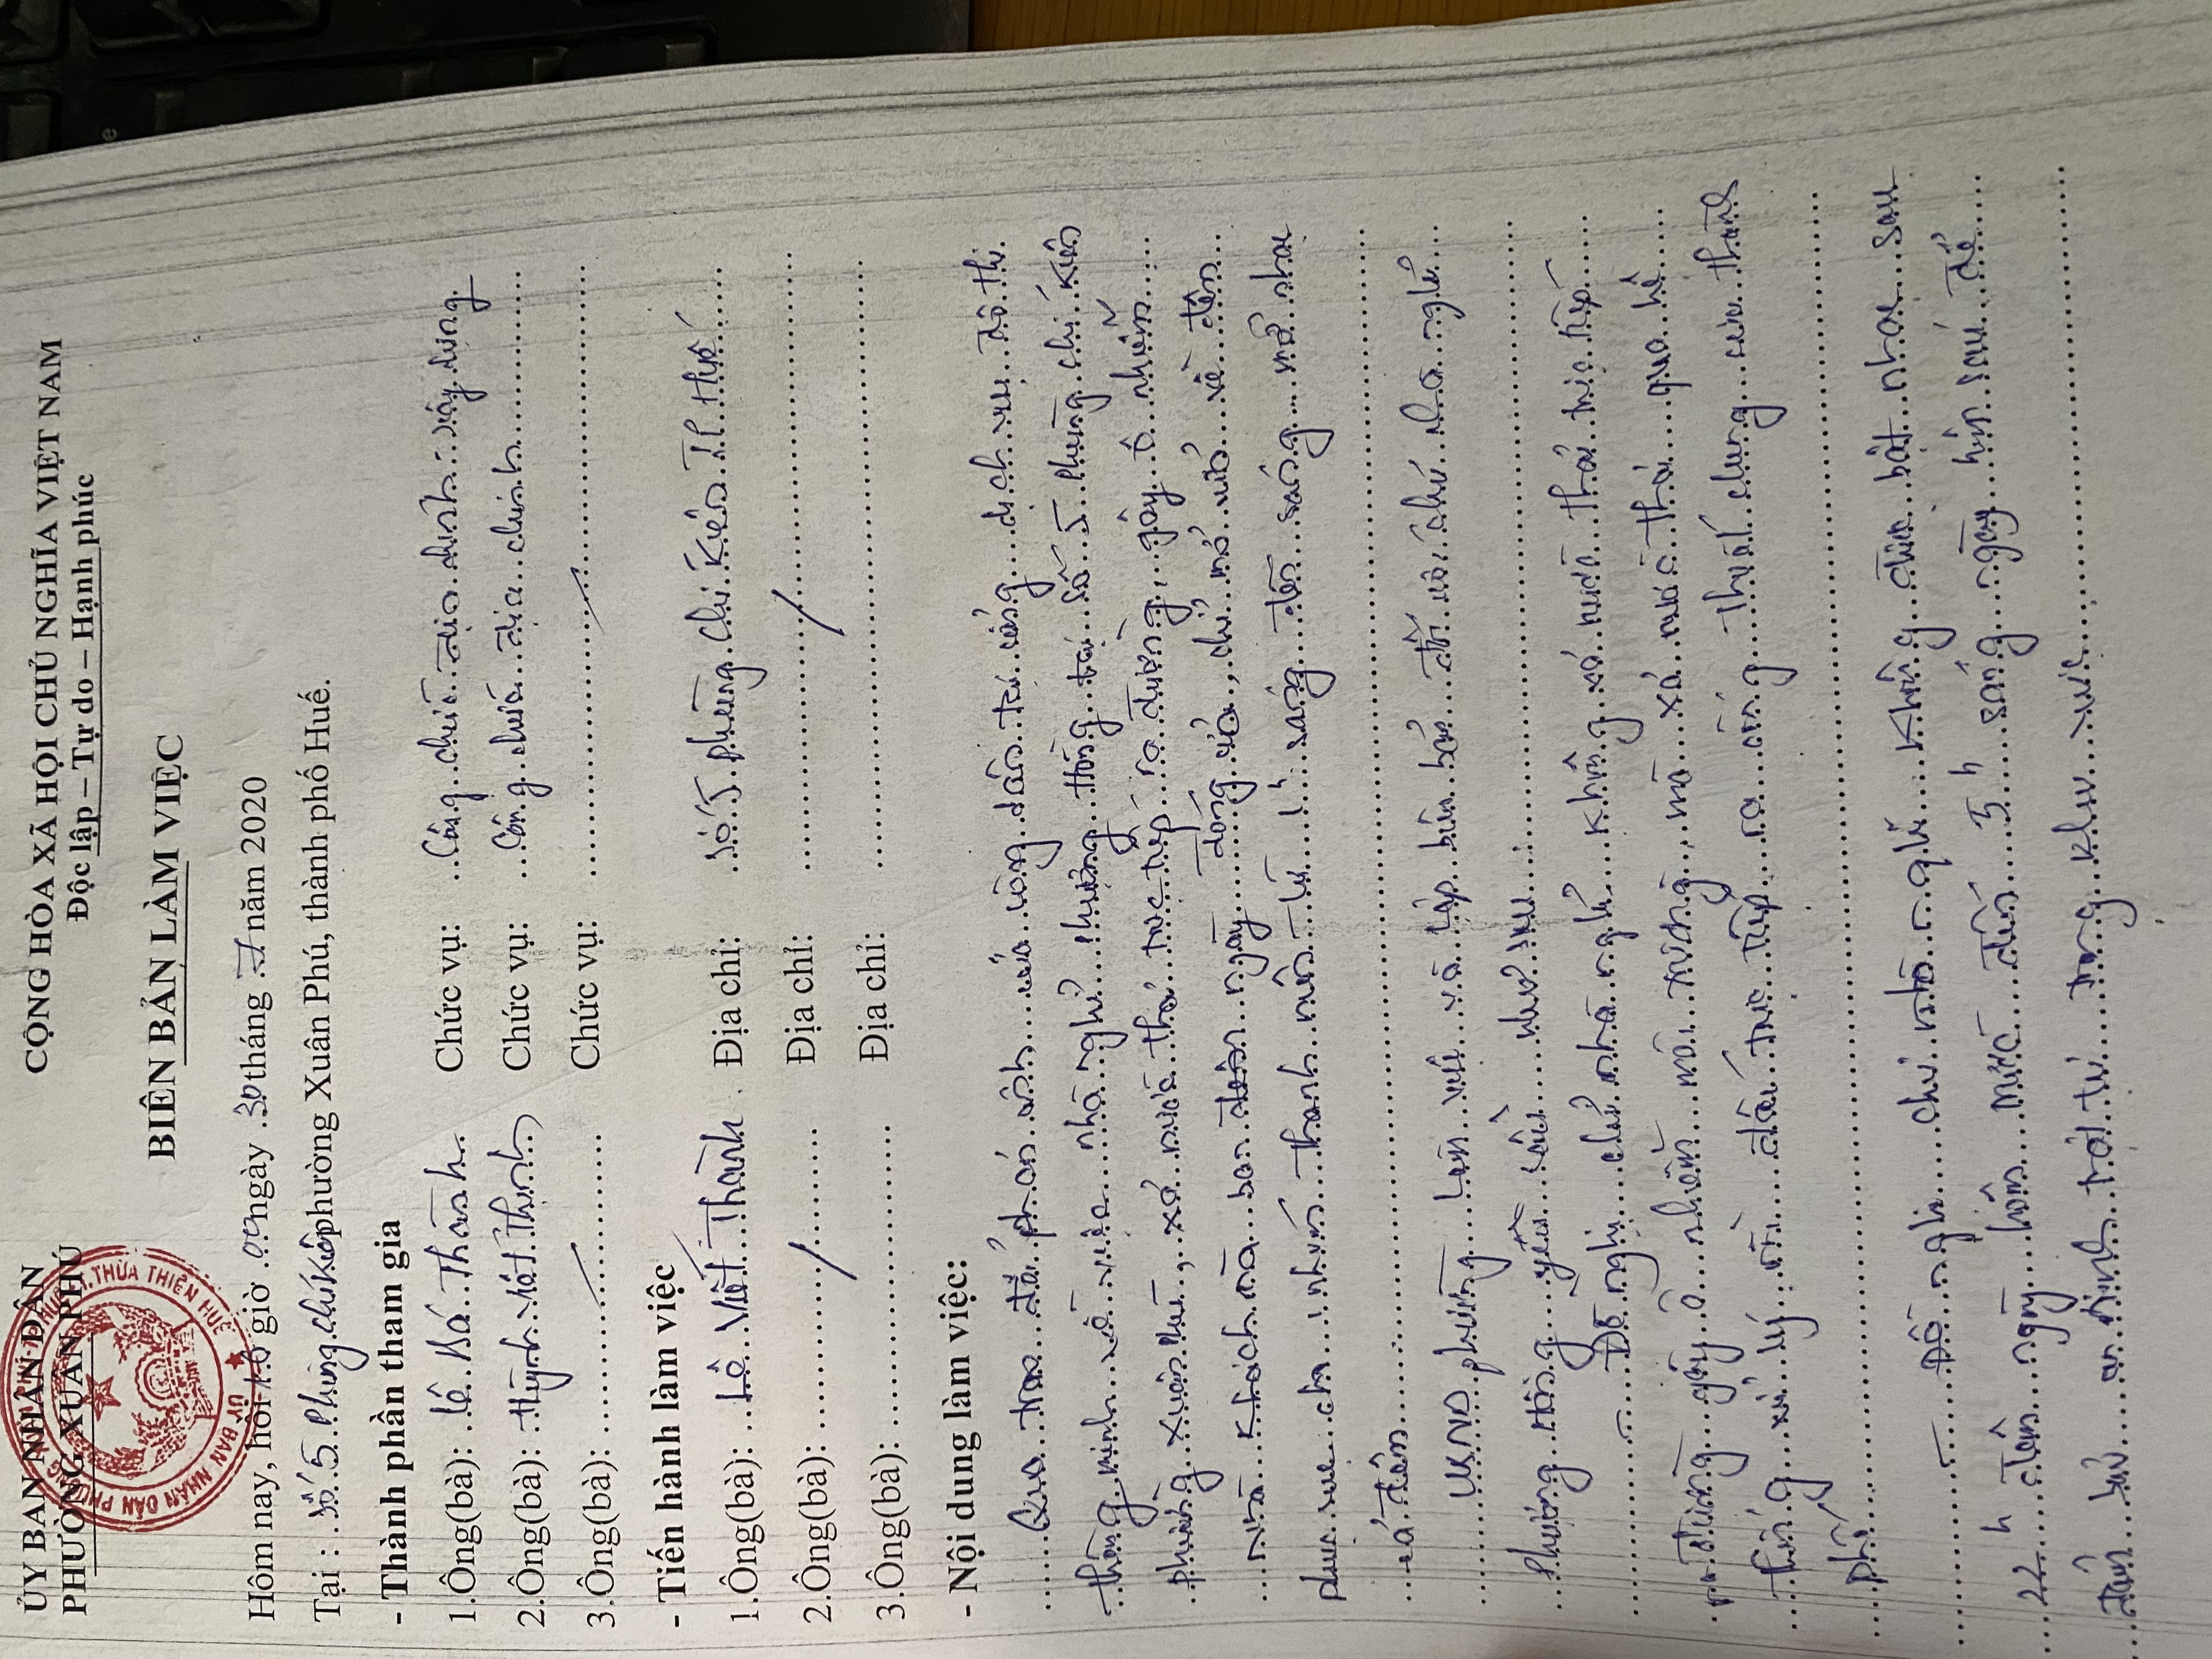 ỦY BAN NHÂN DÂN
PHƯỜNG XUÂN PHÚ
CỘNG HÒA XÃ HỘI CHỦ NGHĨA VIỆT NAM
Độc lập – Tự do – Hạnh phúc
BIÊN BẢN LÀM VIỆC
Hôm nay, hồi giờ ngày 30 tháng năm 2020
Tại : số 5 Phùng Chí Kiên phường Xuân Phú, thành phố Huế.
- Thành phần tham gia
1.Ông(bà): Lê Bá Thành Chức vụ: Công chức địa chính - xây dựng
2.Ông(bà): Huỳnh Viết Thịnh Chức vụ: Công chức địa chính
3.Ông(bà): Chức vụ:
- Tiến hành làm việc
1.Ông(bà): Lê Viết Thành Địa chỉ: Số 5 Phùng Chí Kiên TP Huế
2.Ông(bà): Địa chỉ:
3.Ông(bà): Địa chỉ:
- Nội dung làm việc:
Qua trao đổi phản ánh của công dân tại cổng dịch vụ đô thị
thông minh về việc nhà nghỉ Phượng Hồng tại số 5 Phùng Chí Kiên
phường Xuân Phú, xả nước thải trực tiếp ra đường, gây ô nhiễm
nhà khách mà ban ngày đóng cửa, chỉ mở cửa về đêm
phục vụ cho nhóm thanh niên từ 1h sáng đến sáng mở nhạc
cả đêm
UBND phường làm việc và lập biên bản đối với chủ nhà nghỉ
Phượng Hồng yêu cầu như sau:
- Đề nghị chủ nhà nghỉ không xả nước thải trực tiếp
ra đường gây ô nhiễm môi trường, mà xả nước thải qua hệ
thống xử lý rồi đấu trực tiếp ra cống thoát chung của thành
phố
- Đề nghị chủ nhà nghỉ không được bật nhạc sau
22h đêm ngày hôm trước đến 5h sáng ngày hôm sau để
đảm bảo an ninh trật tự trong khu vực